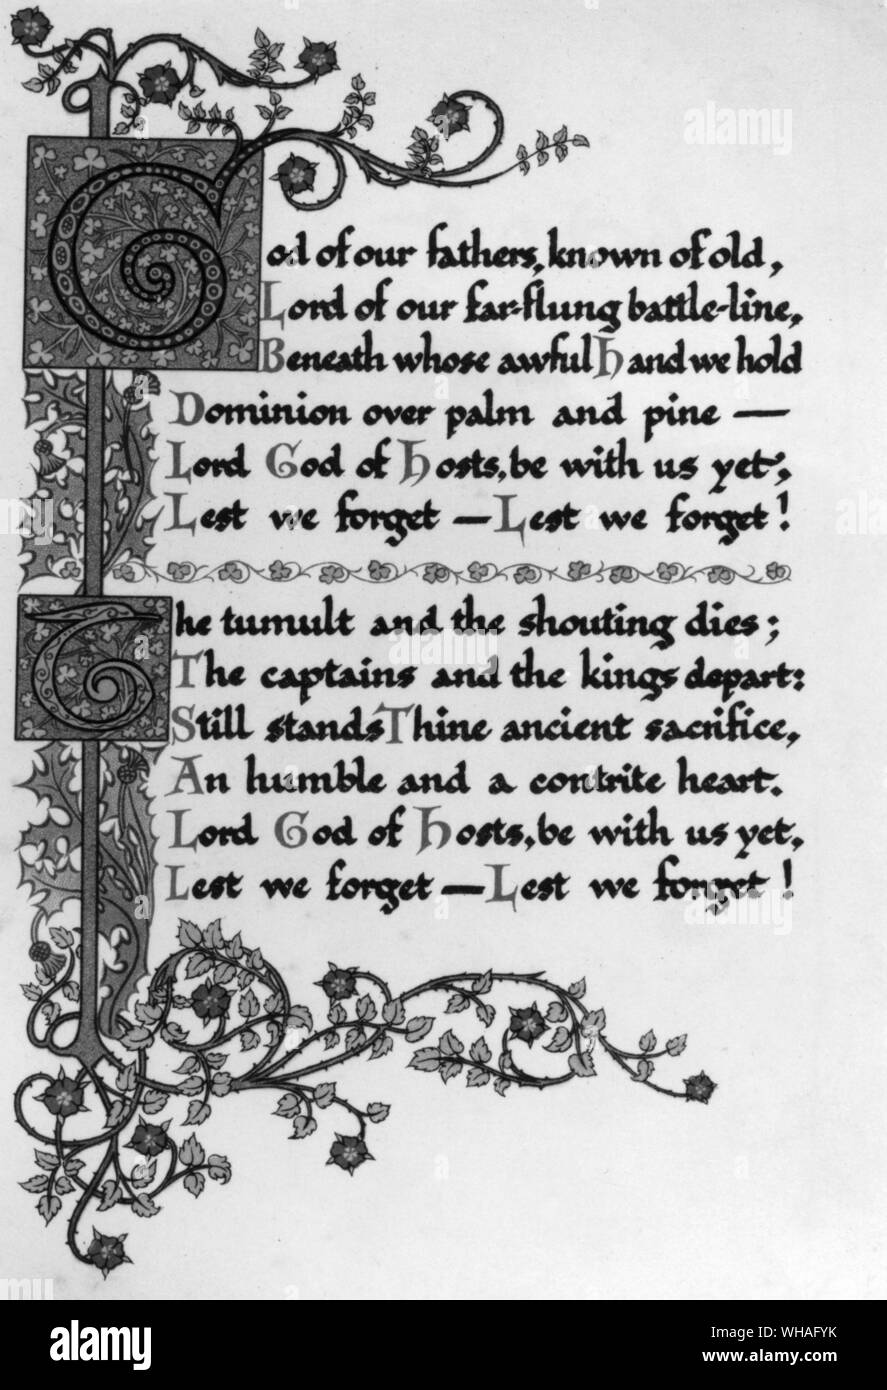 God of our fathers, known of old,
Lord of our far-flung battle-line,
Beneath whose awful Hand we hold
Dominion over palm and pine —
Lord God of Hosts, be with us yet,
Lest we forget — Lest we forget!
The tumult and the shouting dies;
The captains and the kings depart:
Still stands Thine ancient sacrifice,
An humble and a contrite heart.
Lord God of Hosts, be with us yet,
Lest we forget — Lest we forget!
alamy
alamy
alamy
Image ID: WHAFYK
www.alamy.com